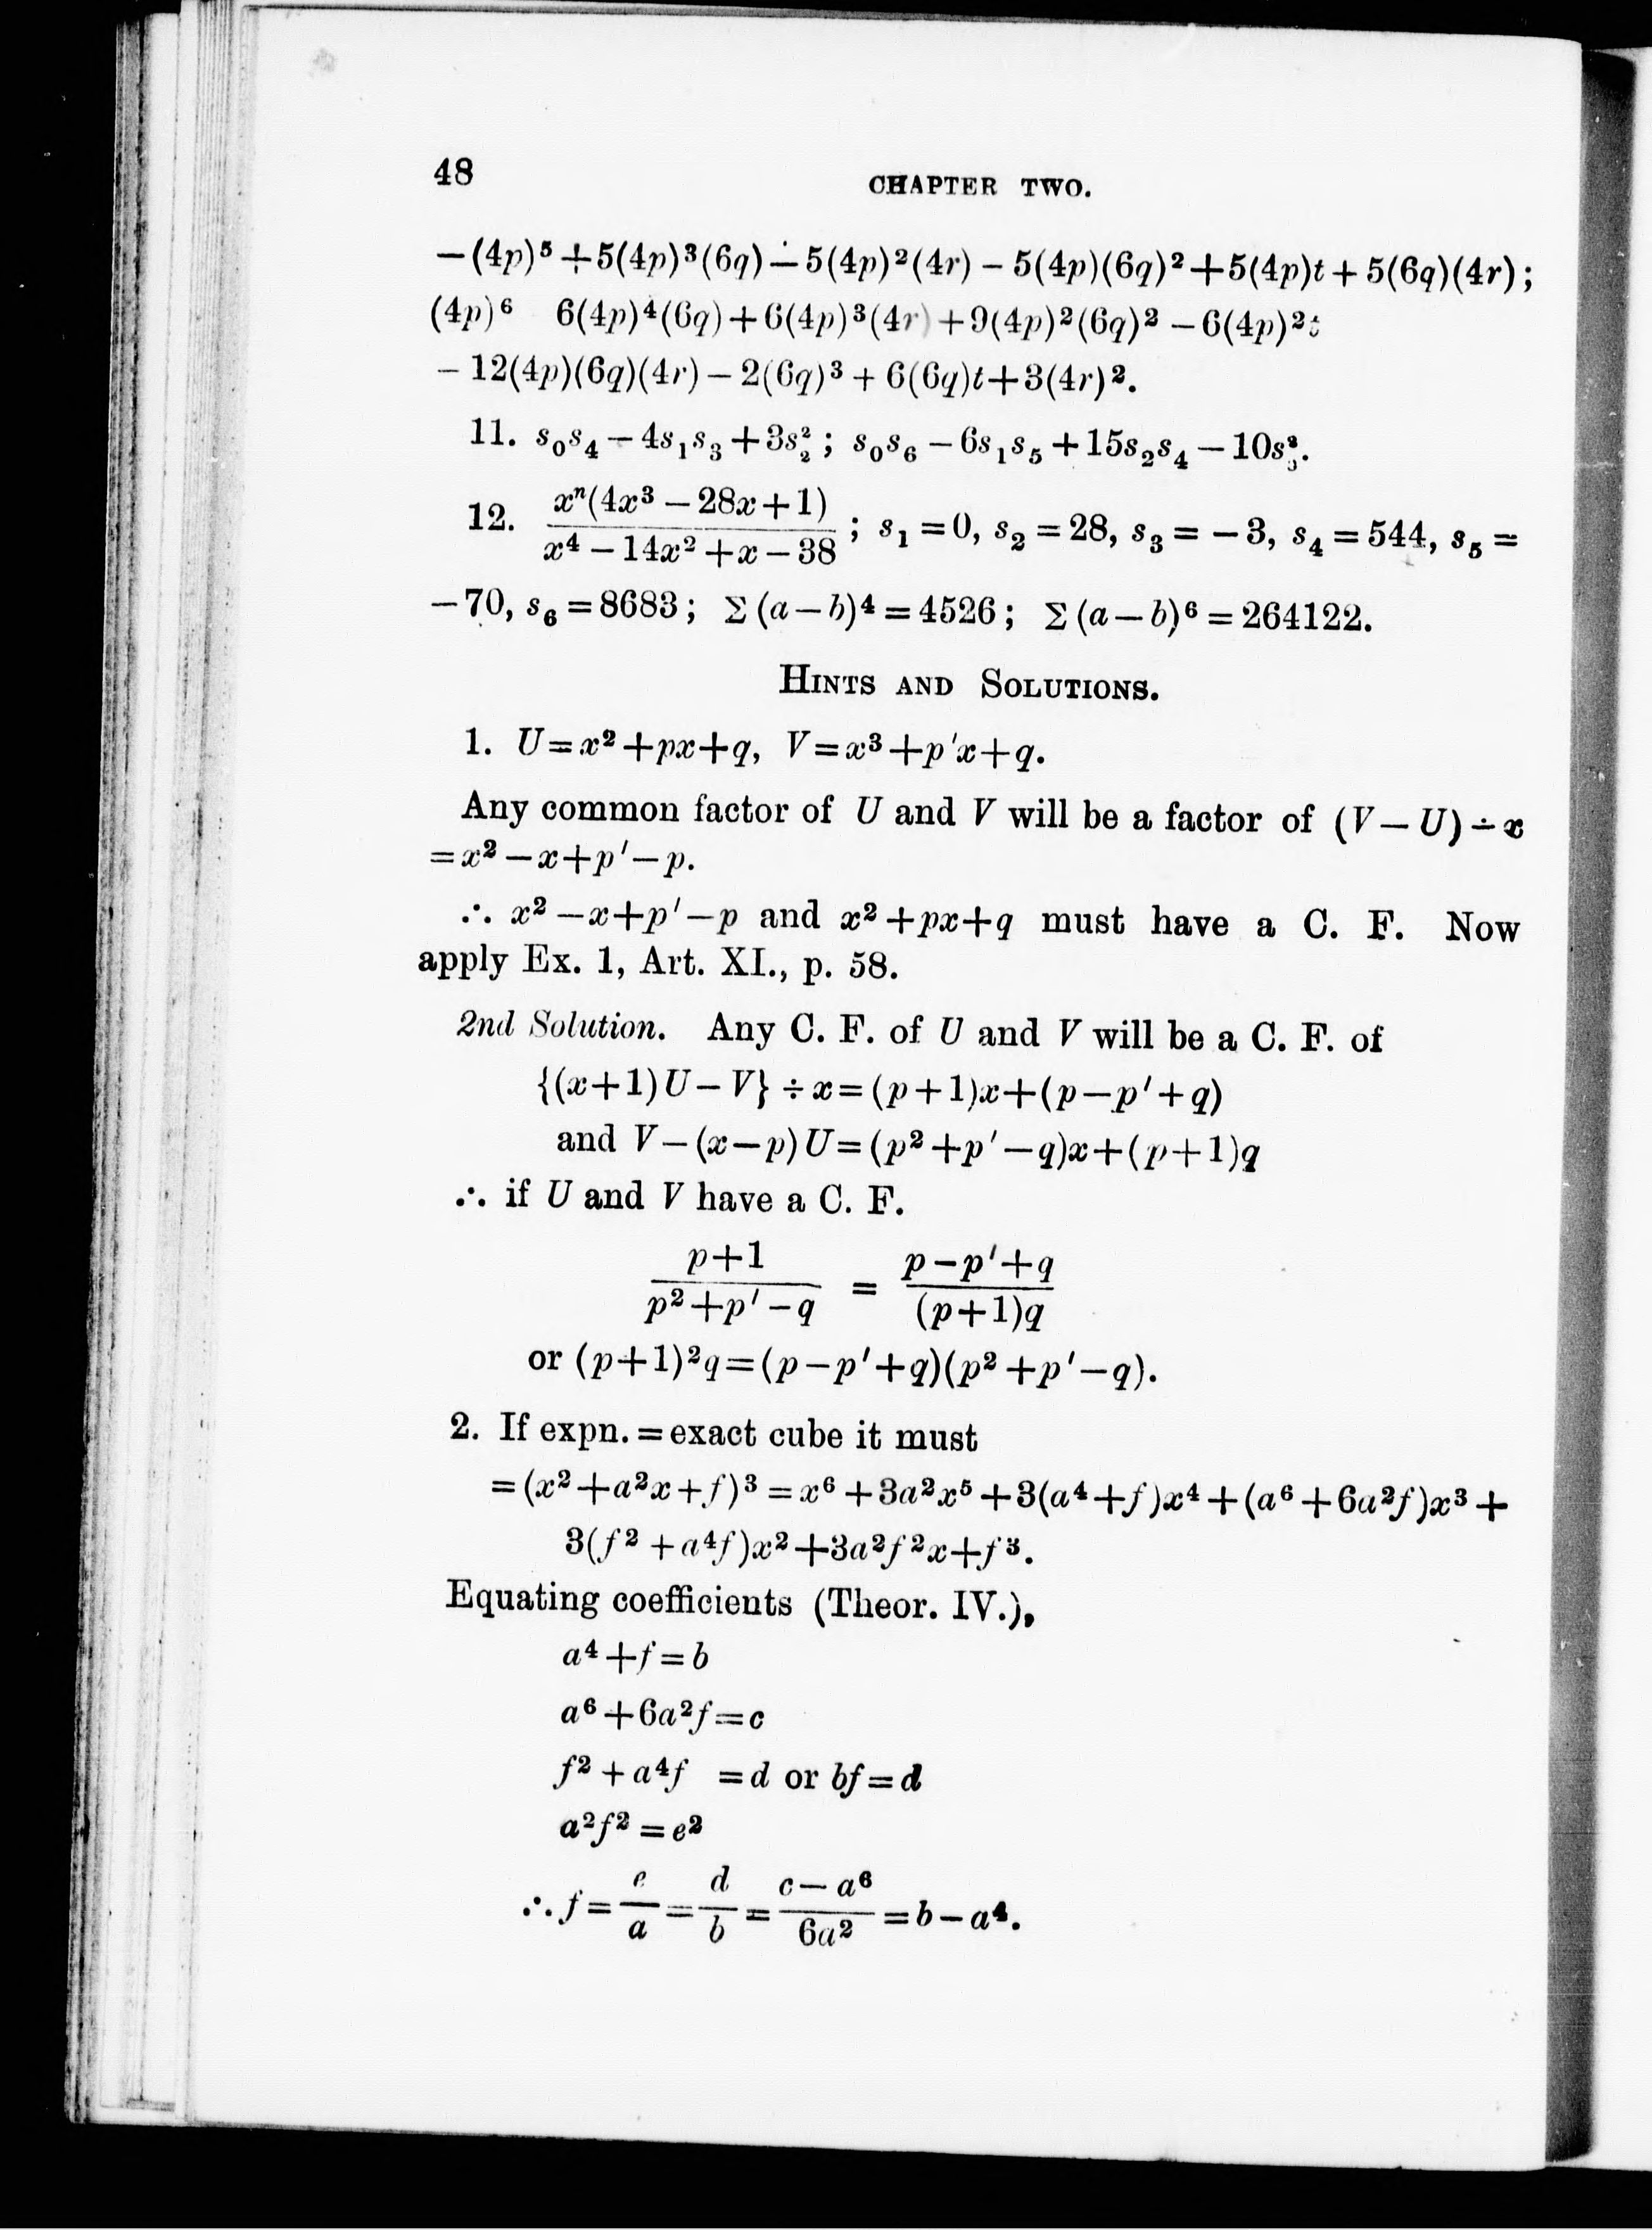 48
CHAPTER TWO.
−(4p)⁵+5(4p)³(6q)−5(4p)²(4r)−5(4p)(6q)²+5(4p)t+5(6q)(4r);
(4p)⁶ 6(4p)⁴(6q)+6(4p)³(4r)+9(4p)²(6q)²−6(4p)²t
−12(4p)(6q)(4r)−2(6q)³+6(6q)t+3(4r)².
11. s₀s₄−4s₁s₃+3s₂²; s₀s₆−6s₁s₅+15s₂s₄−10s₃².
12. xⁿ(4x³−28x+1)/x⁴−14x²+x−38; s₁=0, s₂=28, s₃=−3, s₄=544, s₅=
−70, s₆=8683; Σ(a−b)⁴=4526; Σ(a−b)⁶=264122.
HINTS AND SOLUTIONS.
1. U=x²+px+q, V=x³+p′x+q.
Any common factor of U and V will be a factor of (V−U)÷x
=x²−x+p′−p.
∴ x²−x+p′−p and x²+px+q must have a C. F. Now
apply Ex. 1, Art. XI., p. 58.
2nd Solution. Any C. F. of U and V will be a C. F. of
{(x+1)U−V}÷x=(p+1)x+(p−p′+q)
and V−(x−p)U=(p²+p′−q)x+(p+1)q
∴ if U and V have a C. F.
p+1/p²+p′−q = p−p′+q/(p+1)q
or (p+1)²q=(p−p′+q)(p²+p′−q).
2. If expn.=exact cube it must
=(x²+a²x+f)³=x⁶+3a²x⁵+3(a⁴+f)x⁴+(a⁶+6a²f)x³+
3(f²+a⁴f)x²+3a²f²x+f³.
Equating coefficients (Theor. IV.),
a⁴+f=b
a⁶+6a²f=c
f²+a⁴f =d or bf=d
a²f²=e²
∴ f=e/a=d/b=c−a⁶/6a²=b−a⁴.